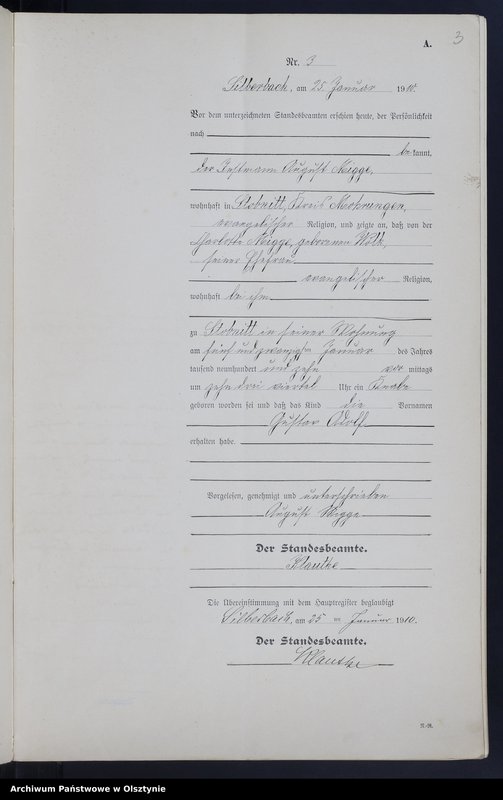 A.
3
Nr. 3
Silberbach, am 25. Januar 1910.
Vor dem unterzeichneten Standesbeamten erschien heute, der Persönlichkeit
nach
bekannt,
der Instmann August Nigge,
wohnhaft in Stobnitt, Kreis Mohrungen,
evangelischer Religion, und zeigte an, daß von der
Charlotte Nigge, geborenen Wölk,
seiner Ehefrau
evangelischer Religion,
wohnhaft bei ihm
zu Stobnitt in seiner Wohnung
am fünf und zwanzigsten Januar des Jahres
tausend neunhundert und zehn vor mittags
um zehn drei viertel Uhr ein Knabe
geboren worden sei und daß das Kind die Vornamen
Gustav Adolf
erhalten habe.
Vorgelesen, genehmigt und unterschrieben
August Nigge
Der Standesbeamte.
Klautke
Die Übereinstimmung mit dem Hauptregister beglaubigt
Silberbach, am 25 ten Januar 1910.
Der Standesbeamte.
Klautke
Archiwum Państwowe w Olsztynie